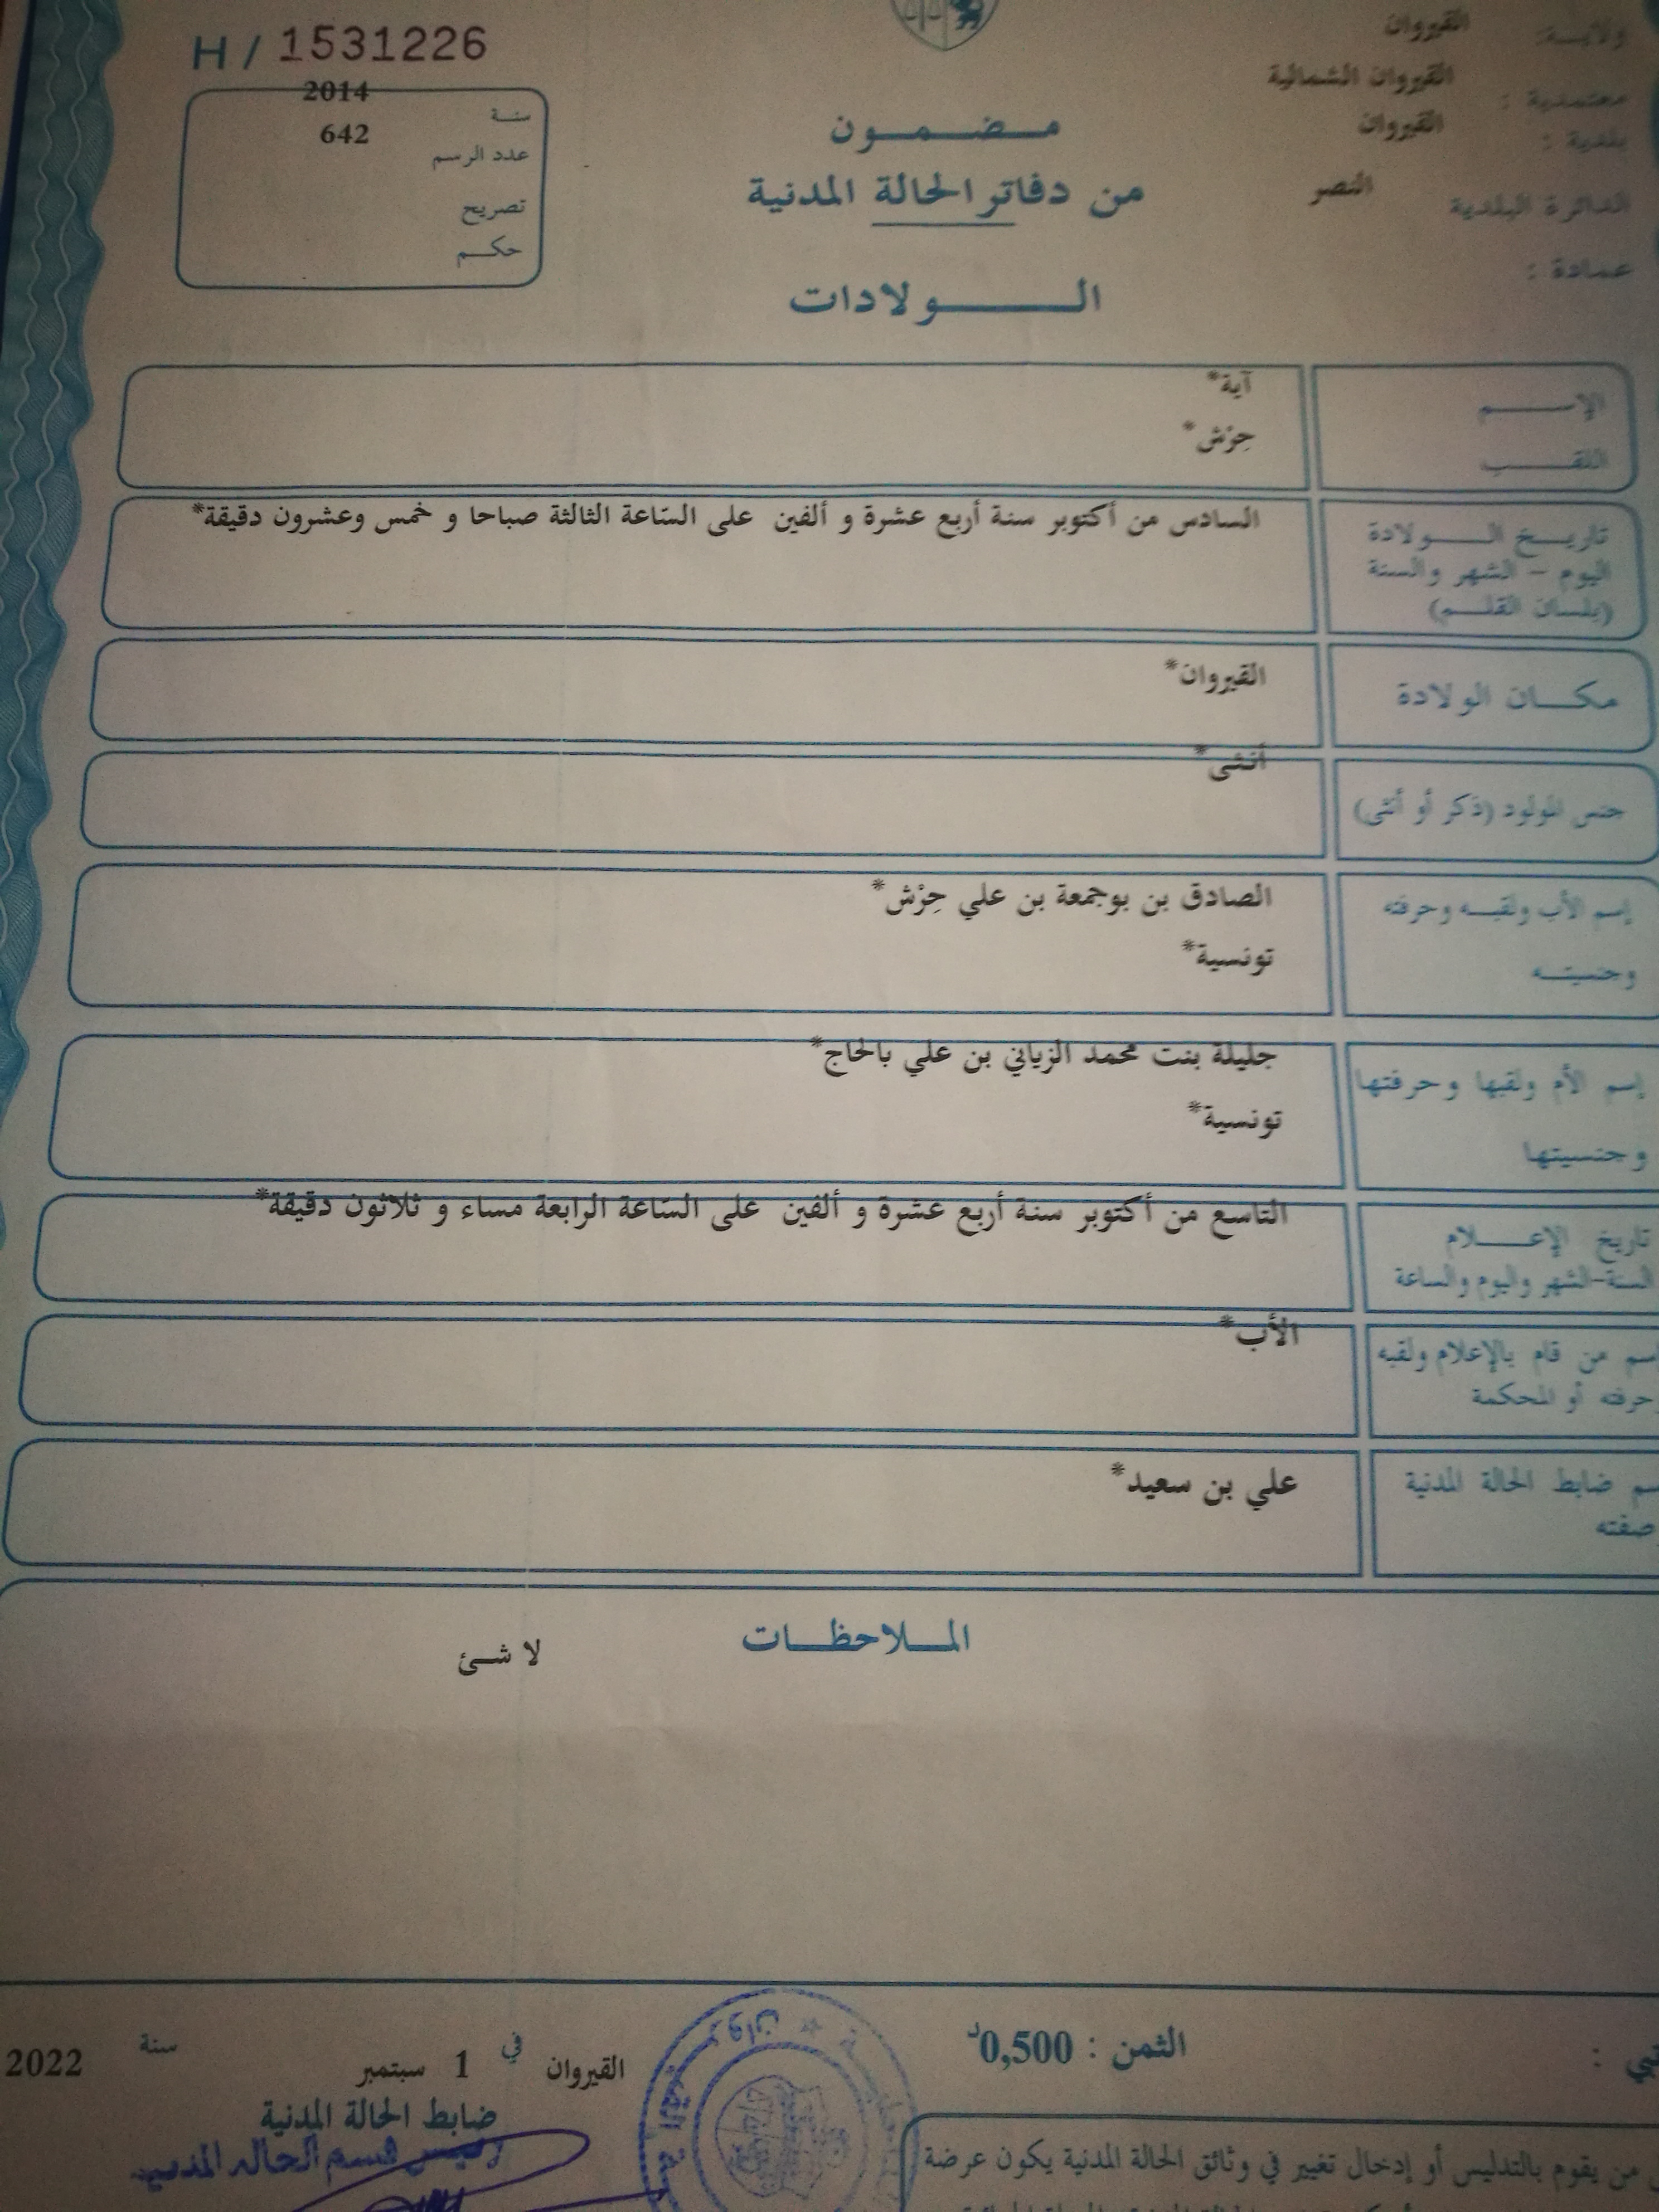 H / 1531226
ولايـــة: القيروان
معتمدية : القيروان الشمالية
بلدية : القيروان
الدائرة البلدية النصر
عمادة :
سنة 2014
عدد الرسم 642
تصريح
حكم
مضمون
من دفاتر الحالة المدنية
الولادات
الإسم آية*
اللقب حِرْش*
تاريخ الولادة السادس من أكتوبر سنة أربع عشرة و ألفين على السّاعة الثالثة صباحا و خمس وعشرون دقيقة*
اليوم - الشهر والسنة
(بلسان القلم)
مكان الولادة القيروان*
جنس المولود (ذكر أو أنثى) أنثى*
إسم الأب ولقبه وحرفته الصادق بن بوجمعة بن علي حِرْش*
وجنسيته تونسية*
إسم الأم ولقبها وحرفتها جليلة بنت محمد الزياني بن علي بالحاج*
وجنسيتها تونسية*
تاريخ الإعلام التاسع من أكتوبر سنة أربع عشرة و ألفين على السّاعة الرابعة مساء و ثلاثون دقيقة*
السنة-الشهر واليوم والساعة
إسم من قام بالإعلام ولقبه الأب*
حرفته أو المحكمة
علي بن سعيد*
ضابط الحالة المدنية
صفته
الملاحظات
لا شئ
الثمن : 0,500د
القيروان في 1 سبتمبر سنة 2022
ضابط الحالة المدنية
رئيس قسم الحالة المدنية
من يقوم بالتدليس أو إدخال تغيير في وثائق الحالة المدنية يكون عرضة